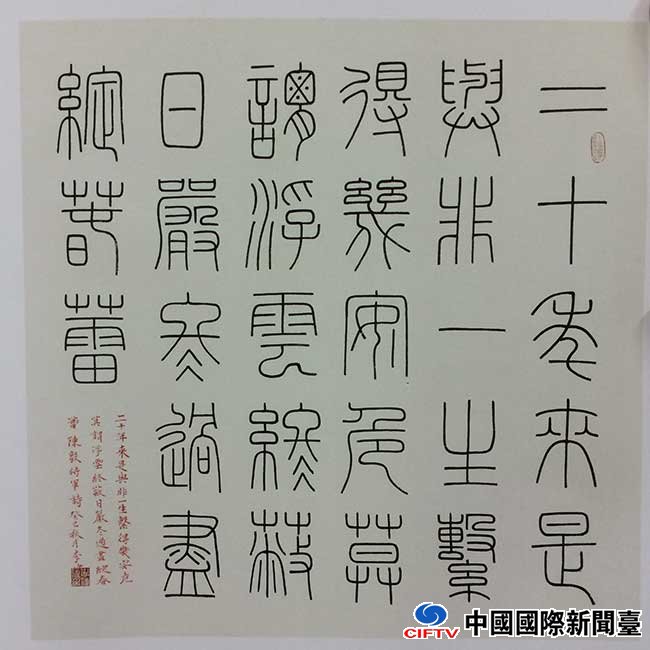 二十年來是
與非一生繫
得幾安危莫
謂浮雲終蔽
日嚴冬過盡
綻春蕾
二十年來是與非一生繫得幾安危
莫謂浮雲終蔽日嚴冬過盡綻春
蕾 陳毅將軍詩癸巳秋月
CIFTV
中國國際新聞臺